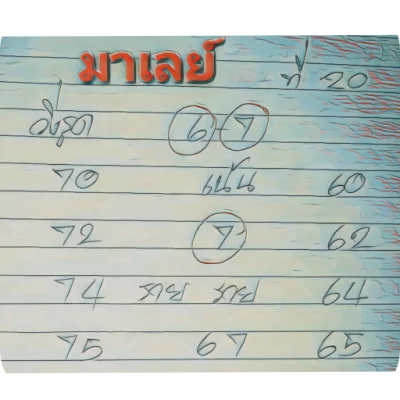 มาเลย์
ที่ 20
วิ่งรูด 6-7
70 เน้น 60
72 7 62
74 รวย รวย 64
75 67 65